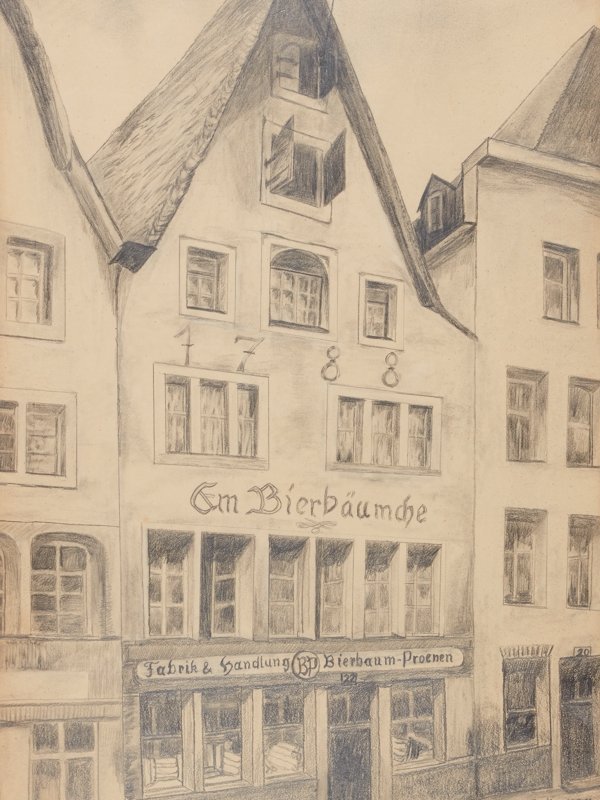 1788
Em Bierbäumche
Fabrik & Handlung BP Bierbaum-Proenen
20